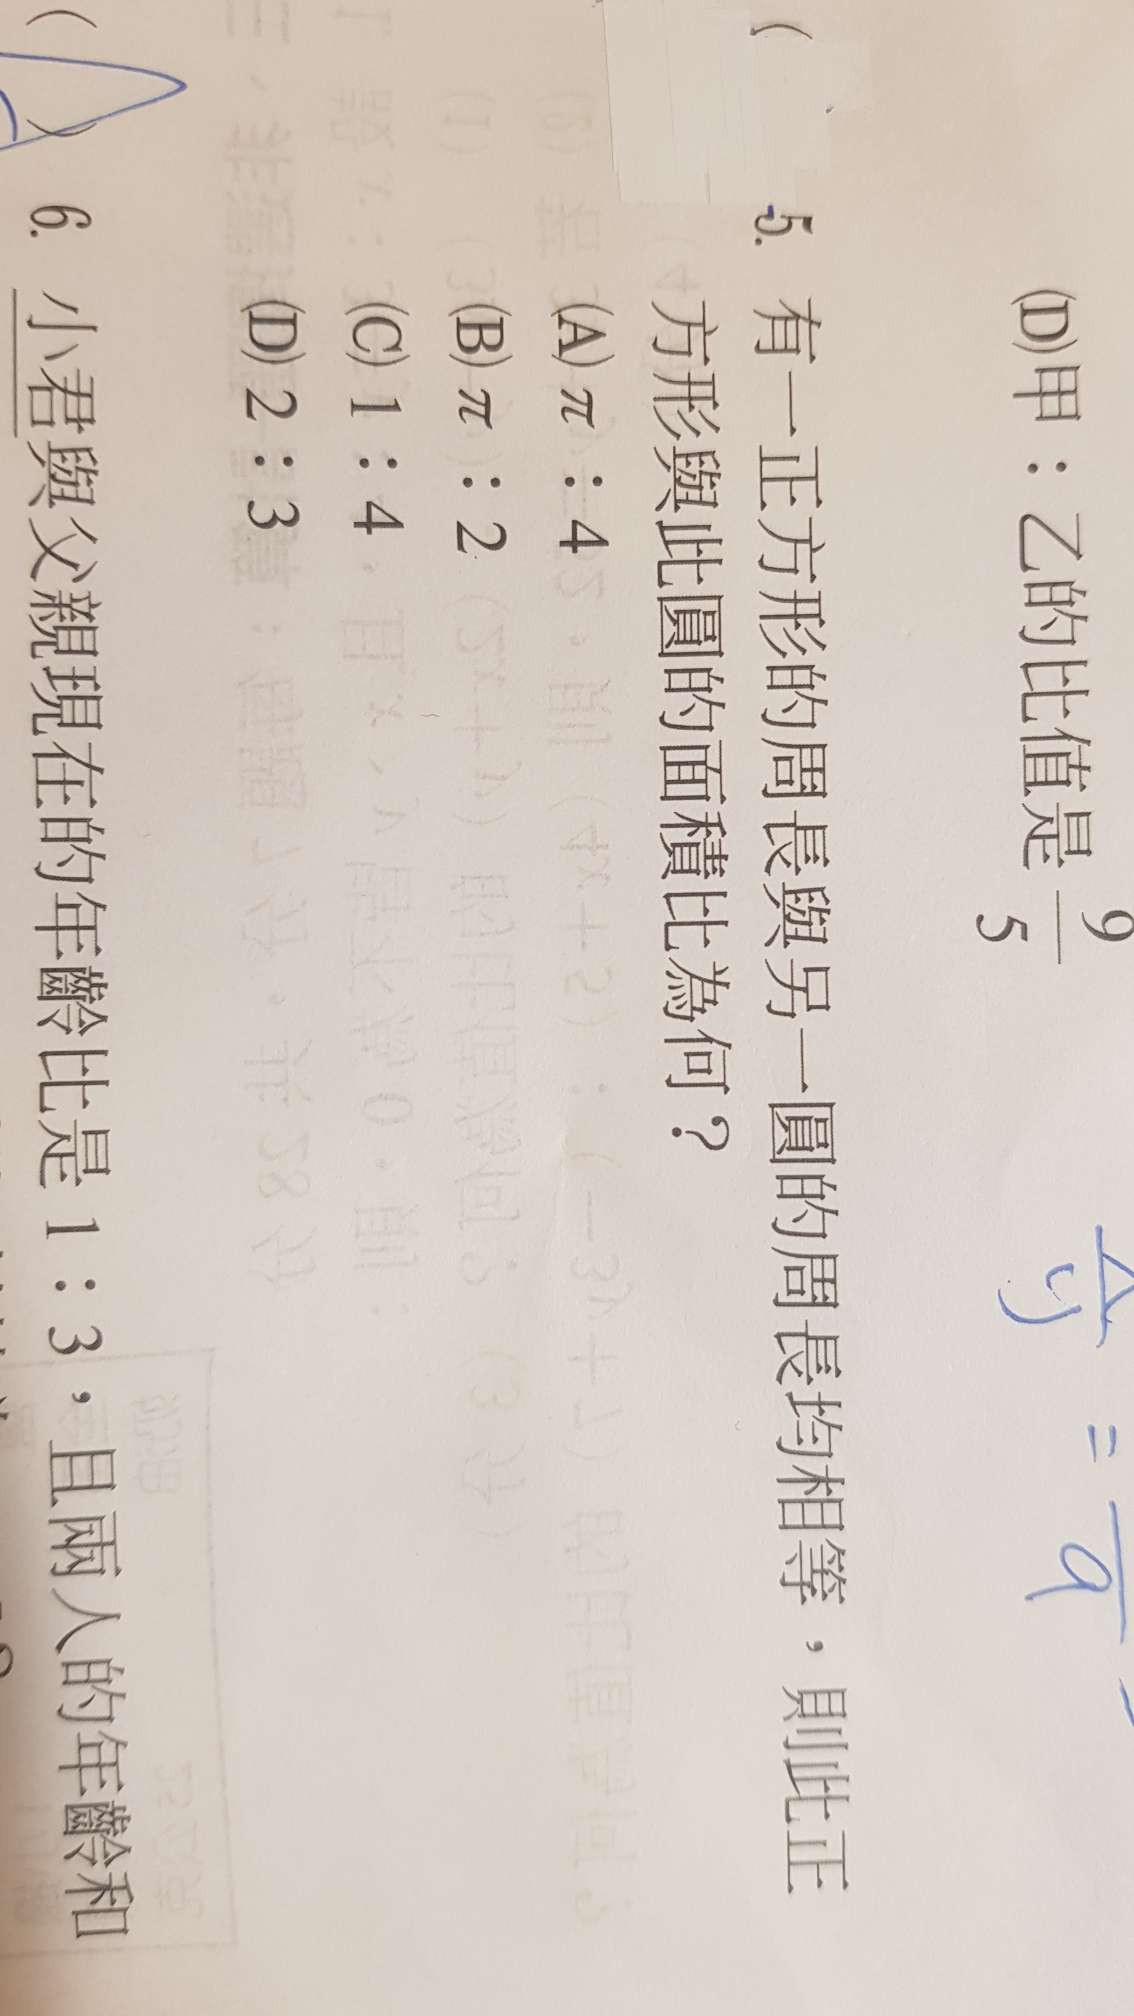 (D)甲：乙的比值是 9/5
= 9
( 5. 有一正方形的周長與另一圓的周長均相等，則此正
方形與此圓的面積比為何？
(A) π：4
(B) π：2
(C) 1：4
(D) 2：3
( ) 6. 小君與父親現在的年齡比是 1：3，且兩人的年齡和